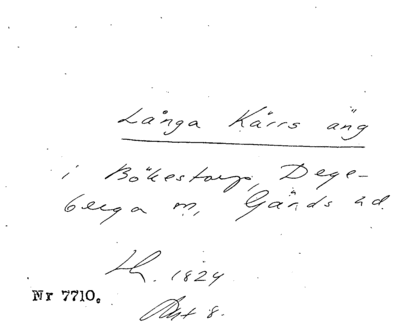 Långa Kärrs äng
i Bökestorp, Dege-
berga m, Gärds hd.
1824
Nr 7710.
Akt 8.